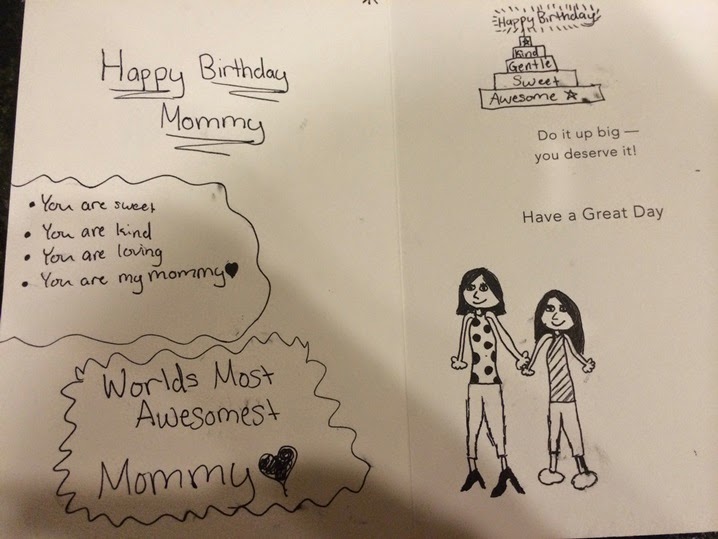 Happy Birthday
Mommy
• You are sweet
• You are kind
• You are loving
• You are my mommy
Worlds Most
Awesomest
Mommy
Happy Birthday
Kind
Gentle
Sweet
Awesome
Do it up big —
you deserve it!
Have a Great Day